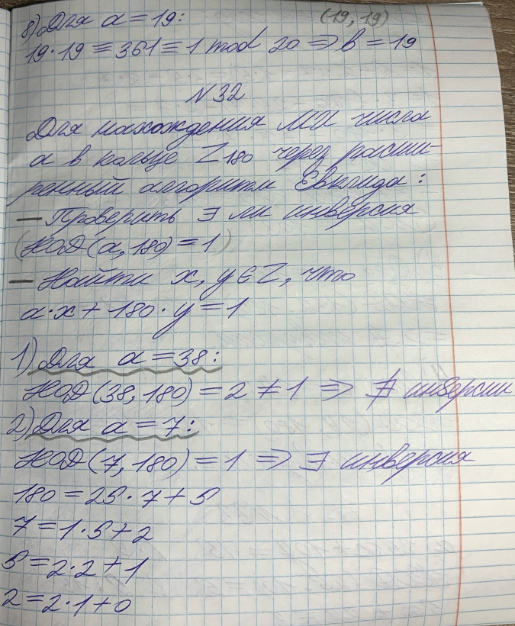 8) Для a = 19: (19, 19)
19 · 19 ≡ 361 ≡ 1 mod 20 ⇒ b = 19
N 32
Для нахождения МИ числа
a в кольце Z180 через расши-
ренный алгоритм Евклида:
— Проверить ∃ ли инверсия
(НОД(a, 180) = 1)
— Найти x, y ∈ Z, что
a · x + 180 · y = 1
1) Для a = 38:
НОД(38, 180) = 2 ≠ 1 ⇒ ∄ инверсии
2) Для a = 7:
НОД(7, 180) = 1 ⇒ ∃ инверсия
180 = 25 · 7 + 5
7 = 1 · 5 + 2
5 = 2 · 2 + 1
2 = 2 · 1 + 0